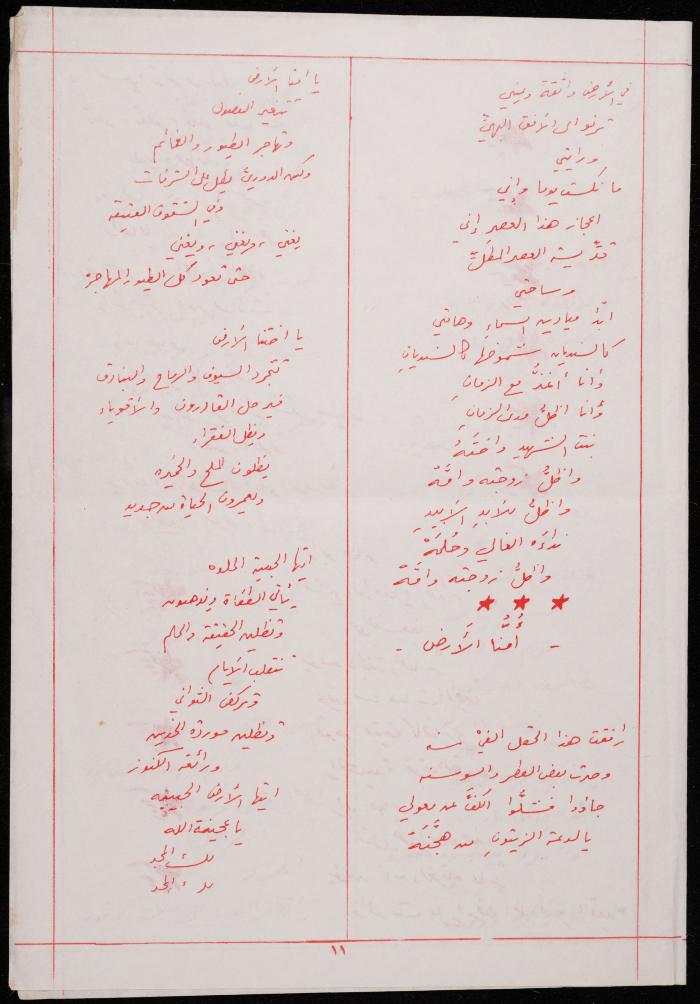 في الأرض واثقة ديني
ترنو الى الأفق البهيّ
ورايتي
ما نكست يوما وإني
اعجاز هذا العصر إني
قدّيسة العصر المطلّ
وساحتي
أبدُ ميادين السماءِ وهامتي
كالسنديان شموخها كالسنديانِ
وأنا أغذُّ مع الزمانِ
وأنا أظلُّ مدى الزمانِ
بنت الشهيد واختَهُ
وأظلُّ زوجته وامَّهْ
وأظلُّ للأبدِ الأبيدِ
نداءَه الغالي وحُلمَهْ
وأظلُّ زوجته وامَّهْ
★ ★ ★
- أُمُّنا الأَرض -
رافقت هذا الحقل الفيْ سنه
وحدت بعض العطر والسوسنه
جاؤوا فشلُّوا الكفَّ عن معولي
يا لدعة الزيتونِ من هجنَهْ
يا أمنا الأرض
تتغير الفصول
وتهاجر الطيور والغمائم
ولكن الدوري يظل على الشرفات
وفي الشقوق العتيقة
يغني، ويغني، ويغني
حتى تعود كل الطيور المهاجرة
يا اختنا الأرض
تتجرد السيوف والرماح والبنادق
فيرحل القادرون والأقوياء
ويظل الفقراء
يظلون الملح والخميره
ويعمرون الحياة من جديد
ايتها الحبيبة الحلوه
يأتي الطغاة ويذهبون
وتظلين الحقيقة والحلم
تتقلب الأيام
وتركض الثواني
وتظلين موردة الخدين
ورائعة الكنوز
ايتها الأرض الحبيبه
يا عجينة الله
لك المجد
لك المجد
١١